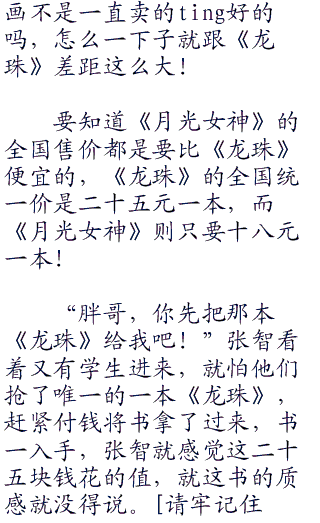 画不是一直卖的ting好的
吗，怎么一下子就跟《龙
珠》差距这么大！
要知道《月光女神》的
全国售价都是要比《龙珠》
便宜的，《龙珠》的全国统
一价是二十五元一本，而
《月光女神》则只要十八元
一本！
“胖哥，你先把那本
《龙珠》给我吧！”张智看
着又有学生进来，就怕他们
抢了唯一的一本《龙珠》，
赶紧付钱将书拿了过来，书
一入手，张智就感觉这二十
五块钱花的值，就这书的质
感就没得说。[请牢记住